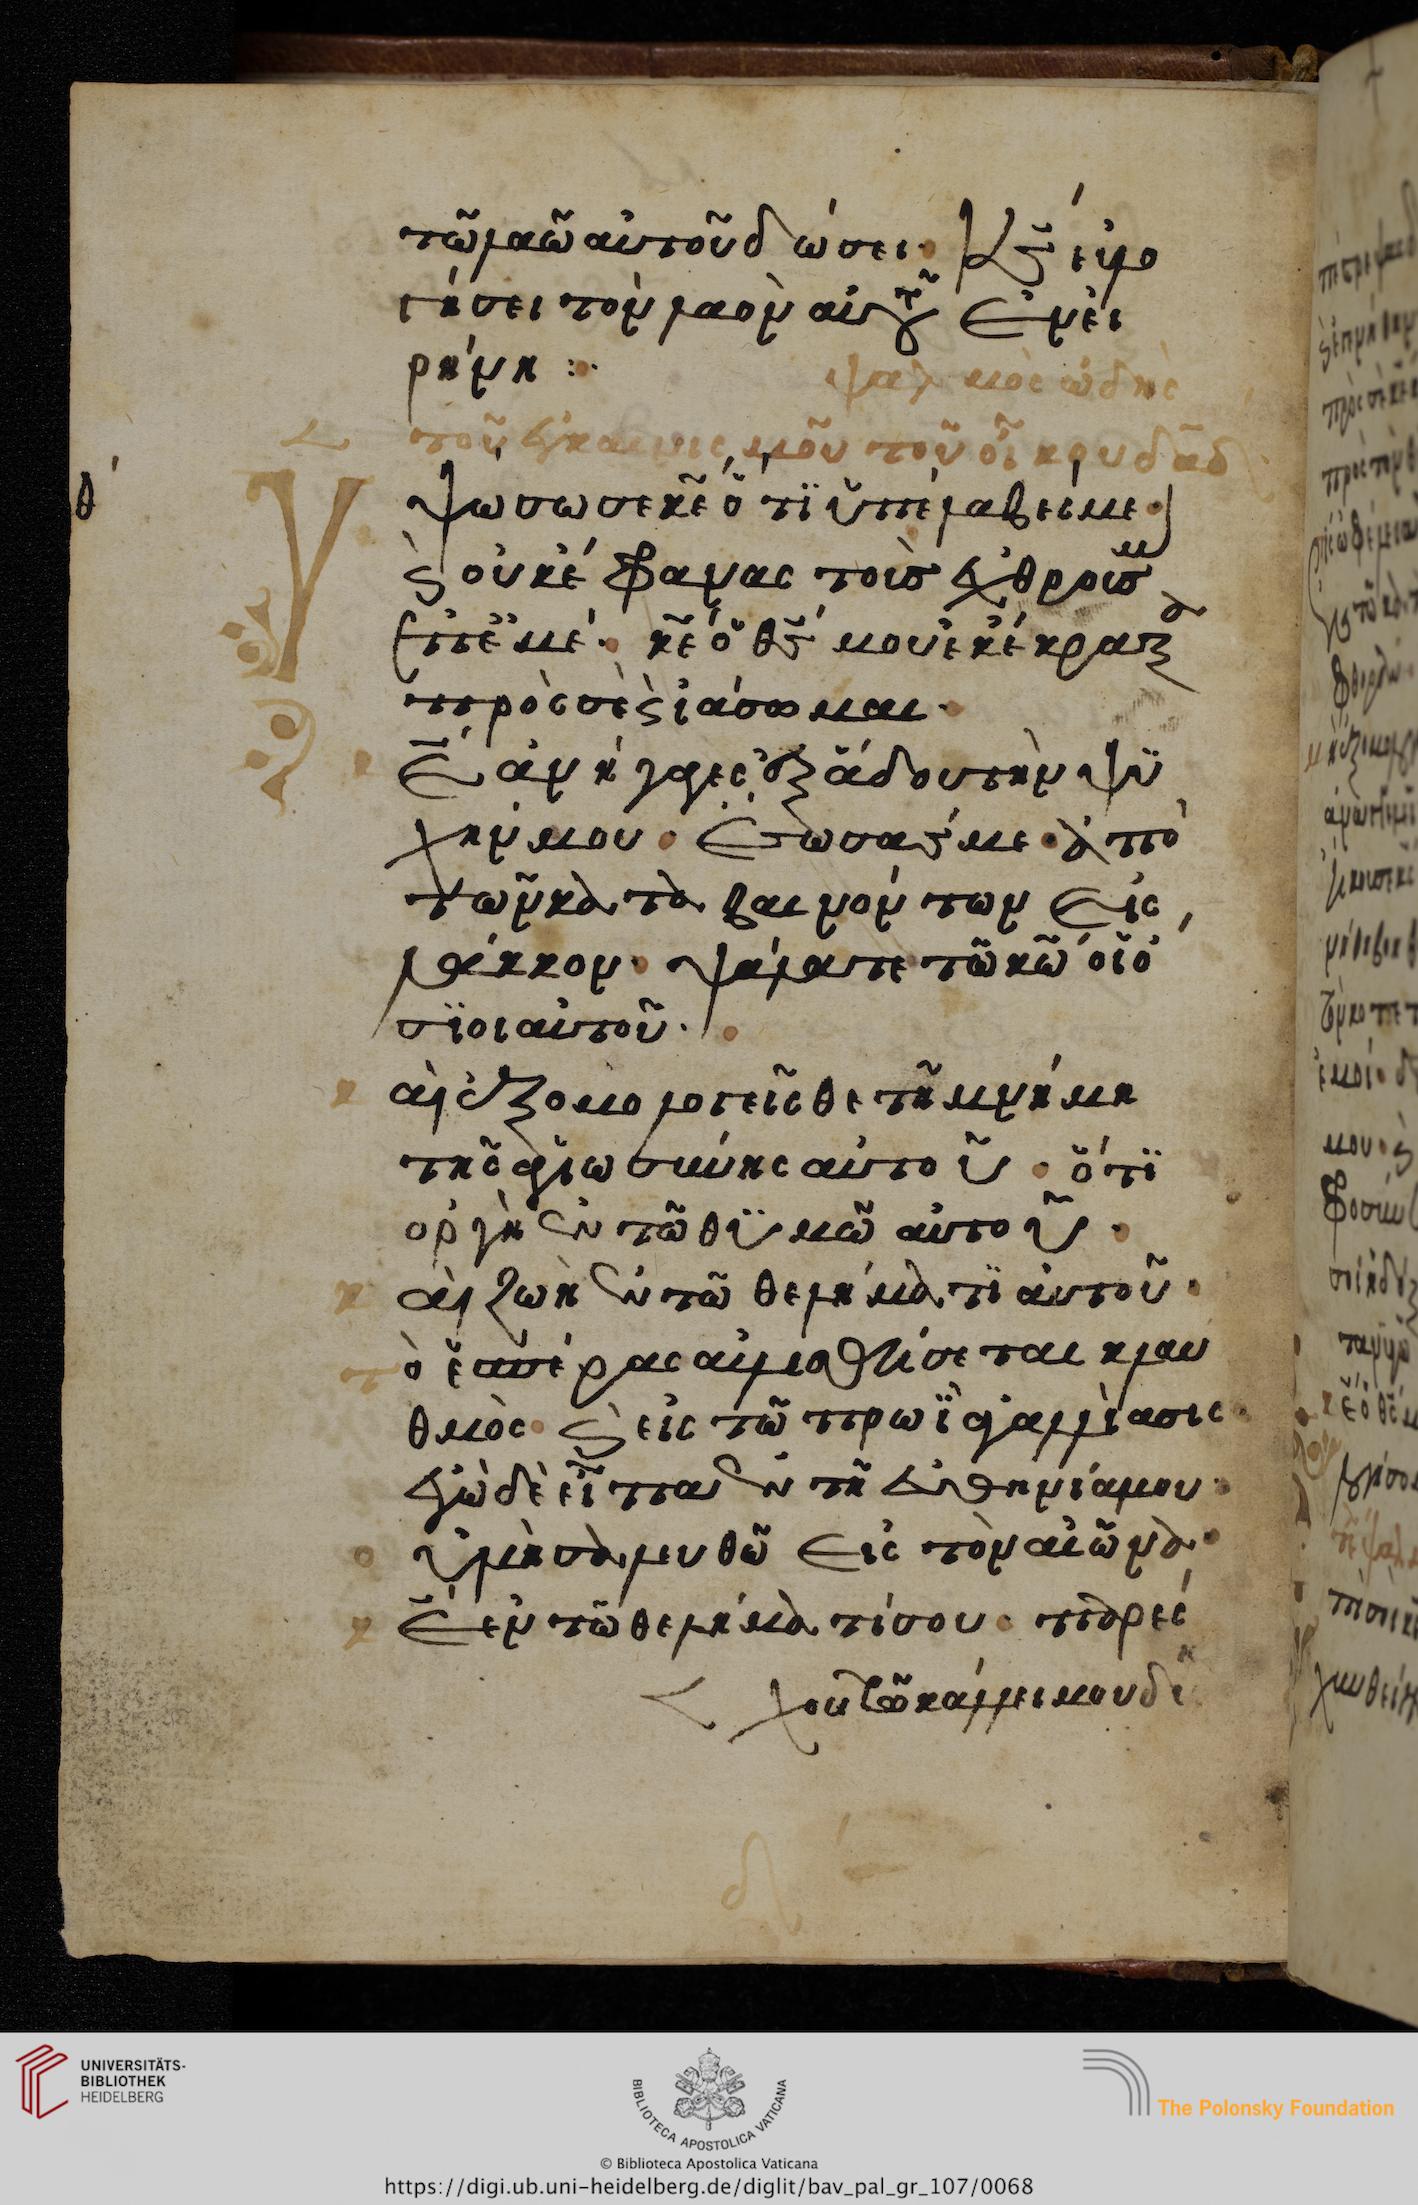 τῶ λαῶ αὐτοῦ δώσει· κς εὐλο
γήσει τὸν λαὸν αὐτοῦ ἐν εἰ
ρήνη :·
ψαλμὸς ὠδῆς
τοῦ ἐγκαινισμοῦ τοῦ οἴκου δαδ
θ΄
Υ
ψώσω σε κε ὅτϊ ὑπέλαβές με·
καὶ οὐκ εὔφρανας τοὺς ἐχθρούς μ
ἐπ' ἐμέ· κε ὁ θς μου ἐκέκραξα
πρὸς σὲ καὶ ἰάσω με·
κε ἀνήγαγες ἐξ ἅδου τὴν ψϋ
χήν μου· ἔσωσάς με ἀπὸ
τῶν καταβαινόντων εἰς
λάκκον· ψάλατε τῶ κω οἱ ὅ
σϊοι αὐτοῦ·
καὶ ἐξομολογεῖσθε τῆ μνήμη
τῆς ἁγιωσύνης αὐτοῦ· ὅτϊ
ὀργὴ ἐν τῶ θϋμῶ αὐτοῦ·
καὶ ζωὴ ἐν τῶ θελήματϊ αὐτοῦ·
τὸ ἑσπέρας αὐλισθήσεται κλαυ
θμὸς· καὶ εἰς τῶ πρωῒ ἀγαλλίασις·
ἐγὼ δὲ εἶπα ἐν τῆ εὐθηνία μου·
οὐ μὴ σαλευθῶ εἰς τὸν αἰῶνα·
κε ἐν τῶ θελήματί σου· παρές
χου τῶ κάλλει μου δύ
UNIVERSITÄTS-
BIBLIOTHEK
HEIDELBERG
BIBLIOTECA APOSTOLICA VATICANA
The Polonsky Foundation
© Biblioteca Apostolica Vaticana
https://digi.ub.uni-heidelberg.de/diglit/bav_pal_gr_107/0068